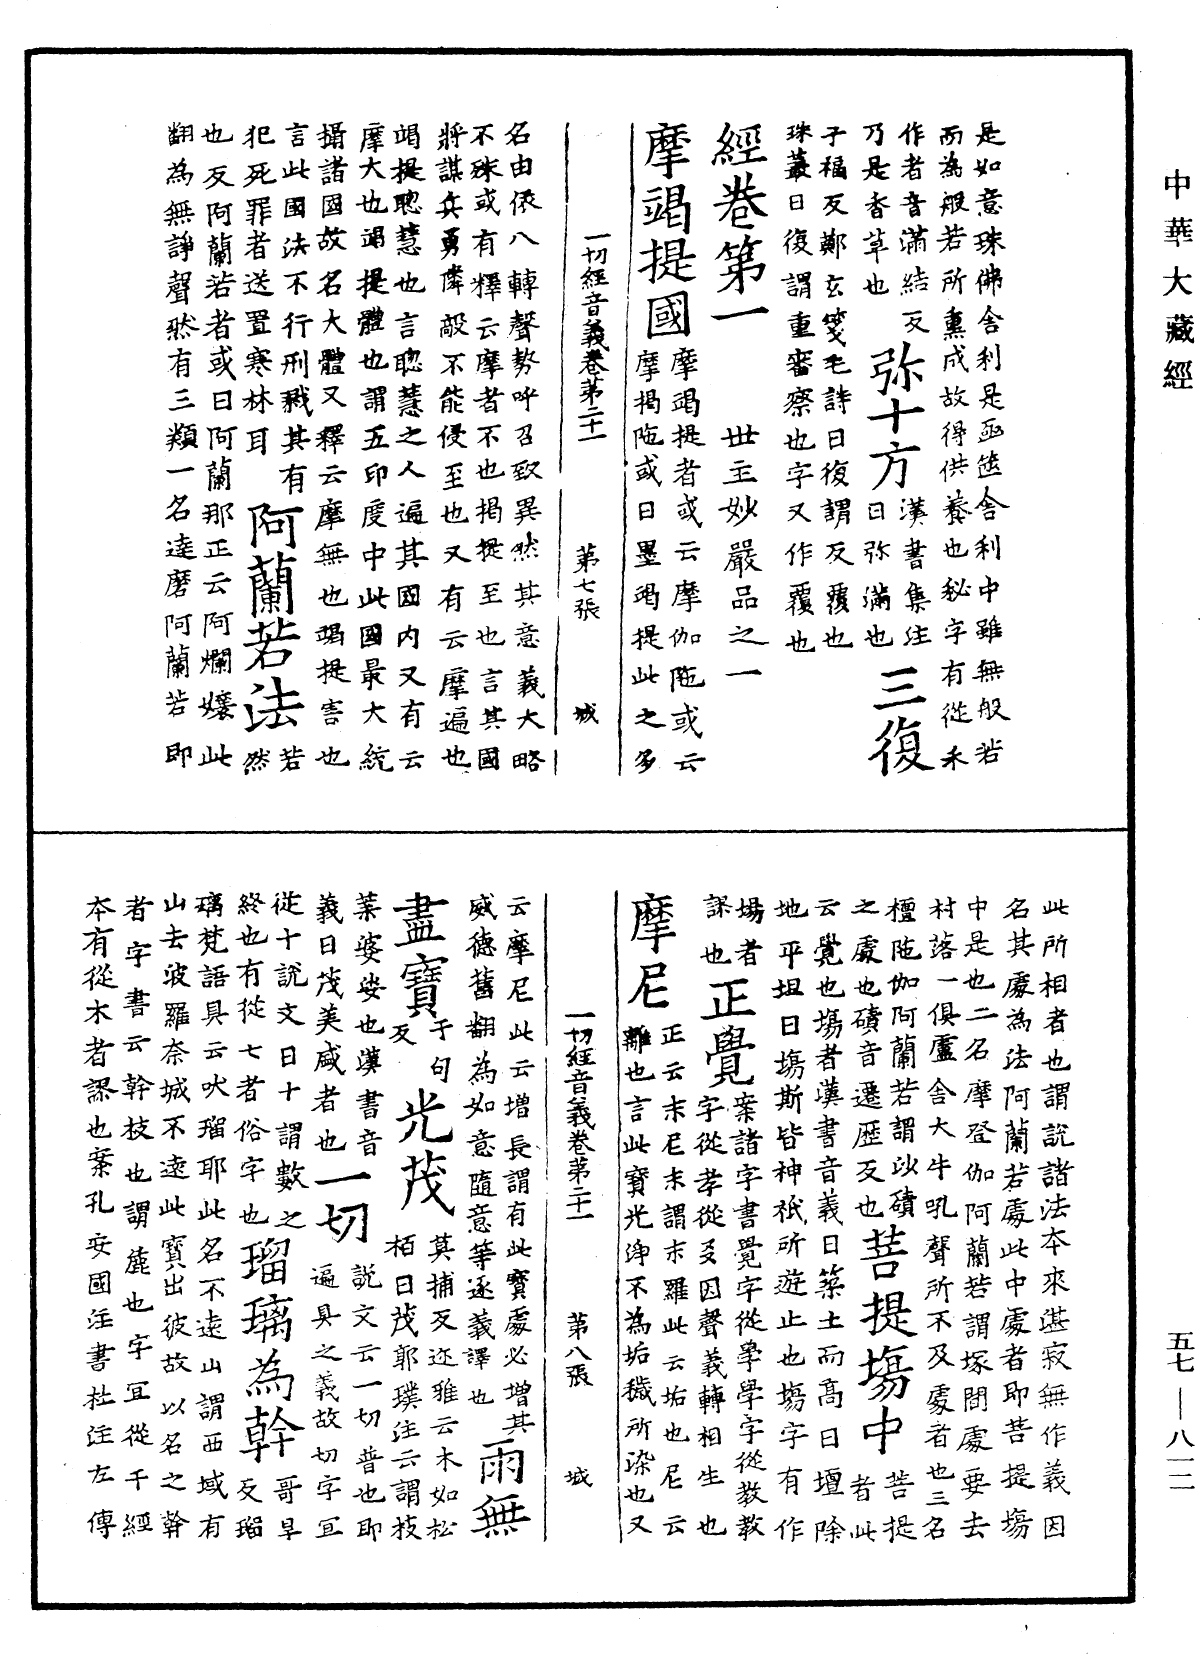 中華大藏經
是如意珠佛舍利是函篋舍利中雖無般若
而為般若所熏成故得供養也秘字有從禾
作者音滿結反　弥十方　漢書集注
乃是香草也　曰弥滿也　三復
子福反鄭玄箋毛詩曰復謂反覆也
珠叢曰復謂重審察也字又作覆也
經卷第一　世主妙嚴品之一
摩竭提國　摩竭提者或云摩伽陁或云
摩揭陁或曰墨竭提此之多
一切經音義卷第二十一　第七張　城
名由依八轉聲勢呼召致異然其意義大略
不殊或有釋云摩者不也揭提至也言其國
將謀兵勇隣敵不能侵至也又有云摩遍也
竭提聰慧也言聰慧之人遍其國內又有云
摩大也竭提體也謂五印度中此國最大統
攝諸國故名大體又釋云摩無也竭提害也
言此國法不行刑戮其有
犯死罪者送置寒林耳　阿蘭若法　若
然
也反阿蘭若者或曰阿蘭那正云阿爛孃此
翻為無諍聲然有三類一名達磨阿蘭若即
此所相者也謂說諸法本來湛寂無作義因
名其處為法阿蘭若處此中處者即菩提場
中是也二名摩登伽阿蘭若謂塚間處要去
村落一俱盧舍大牛吼聲所不及處者也三名
檀陁伽阿蘭若謂沙磧
之處也磧音遷歷反也　菩提場中　菩提
者此
云覺也場者漢書音義曰築土而高曰壇除
地平坦曰場斯皆神祇所遊止也場字有作
塲者
謬也　正覺　案諸字書覺字從學學字從教教
字從孝從爻因聲義轉相生也
摩尼　正云末尼末謂末羅此云垢也尼云
離也言此寶光淨不為垢穢所染也又
一切經音義卷第二十一　第八張　城
云摩尼此云增長謂有此寶處必增其
威德舊翻為如意隨意等逐義譯也　雨無
盡寶　于句
反　光茂　莫捕反迩雅云木如松
栢曰茂郭璞注云謂枝
葉婆娑也漢書音
義曰茂美咸者也　一切　說文云一切普也即
遍具之義故切字宜
從十說文曰十謂數之
終也有從七者俗字也　瑠璃為幹　哥旱
反瑠
璃梵語具云吠瑠耶此名不遠山謂西域有
山去波羅奈城不遠此寶出彼故以名之幹
者字書云幹枝也謂麁也字冝從干經
本有從木者謬也案孔安國注書杜注左傳
五七—八一二